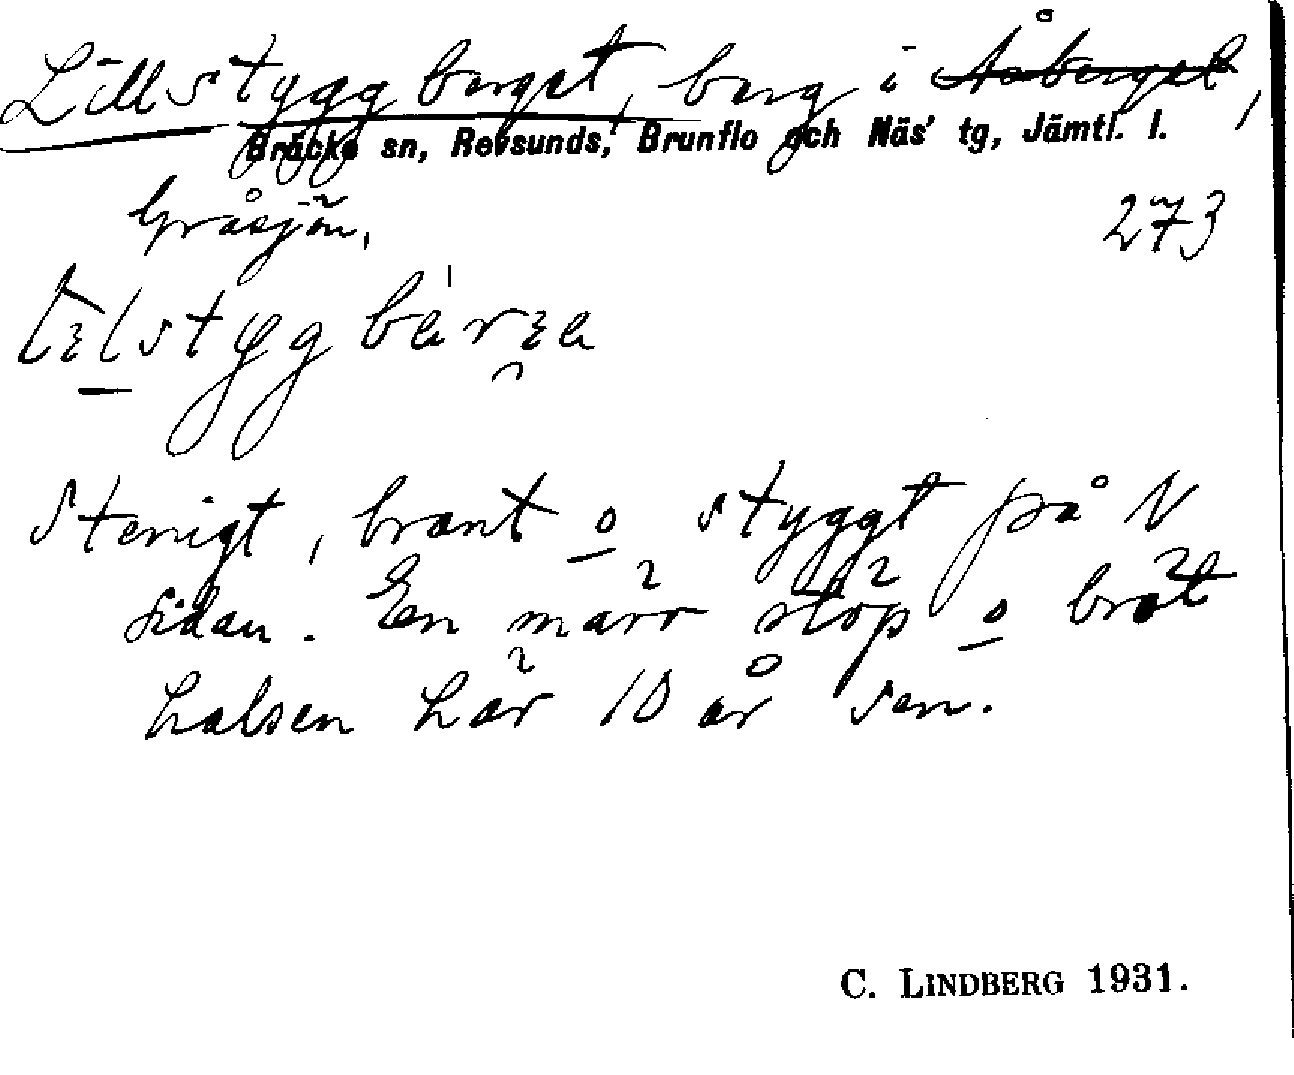 Lillstyggberget, berg i Åsberget,
Bräcke sn, Revsunds, Brunflo och Näs' tg, Jämtl. l.
Gråsjön.
273
Stenigt, brant o styggt på N
sidan. En märr stöp o bröt
halsen här 10 år sen.
C. LINDBERG 1931.